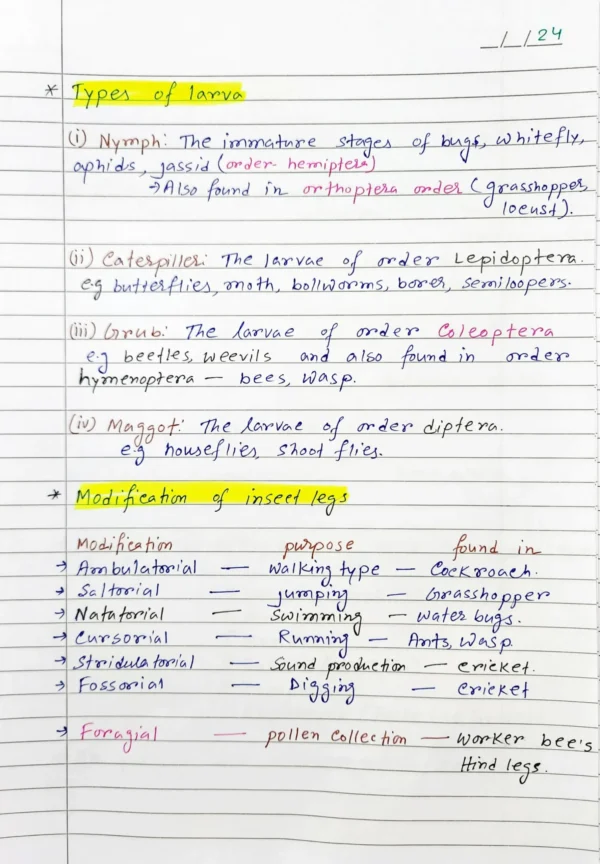 _/_/24
* Types of larva
(i) Nymph: The immature stages of bugs, whitefly,
aphids, jassid (order- hemiptera)
→ Also found in orthoptera order (grasshopper,
locust).
(ii) Caterpiller: The larvae of order Lepidoptera.
e.g butterflies, moth, bollworms, borer, semiloopers.
(iii) Grub: The larvae of order Coleoptera
e.g beetles, weevils and also found in order
hymenoptera — bees, wasp.
(iv) Maggot: The larvae of order diptera.
e.g houseflies, shoot flies.
* Modification of insect legs
Modification purpose found in
→ Ambulatorial — walking type — Cockroach.
→ Saltorial — jumping — Grasshopper
→ Natatorial — Swimming — water bugs.
→ Cursorial — Running — Ants, wasp
→ Stridulatorial — Sound production — cricket.
→ Fossorial — Digging — cricket
→ Foragial — pollen collection — worker bee's
Hind legs.